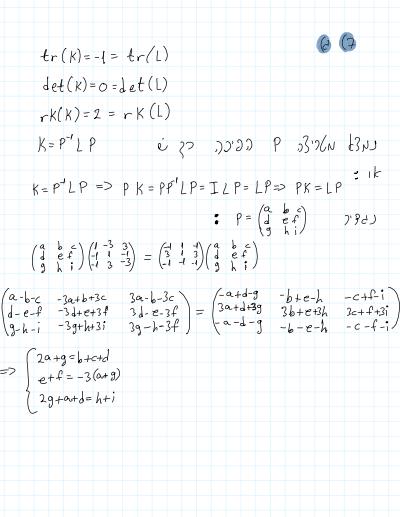 (7 (2
tr(K) = -1 = tr(L)
det(K) = 0 = det(L)
rk(K) = 2 = rk(L)
נמצא מטריצה P הפיכה כך ש K = P⁻¹LP
אז :
K = P⁻¹LP => PK = PP⁻¹LP = ILP = LP => PK = LP
נגדיר P = (a b c
d e f
g h i) :
(a b c
d e f
g h i) (1 -3 3
-1 1 -3
-1 3 -3) = (-1 1 -1
3 1 3
-1 -1 -1) (a b c
d e f
g h i)
(a-b-c -3a+b+3c 3a-b-3c
d-e-f -3d+e+3f 3d-e-3f
g-h-i -3g+h+3i 3g-h-3f) = (-a+d-g -b+e-h -c+f-i
3a+d+3g 3b+e+3h 3c+f+3i
-a-d-g -b-e-h -c-f-i)
=> { 2a+g=b+c+d
e+f=-3(a+g)
2g+a+d=h+i